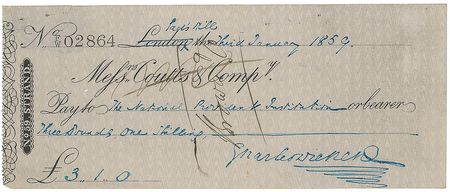 Gad's Hill
No. 02864 London the Third January 1859
Messrs. Coutts & Compy.
Pay to The National Provident Institution or bearer
Three Pounds, One Shilling,
Charles Dickens
£3.1.0
No. 59 STRAND